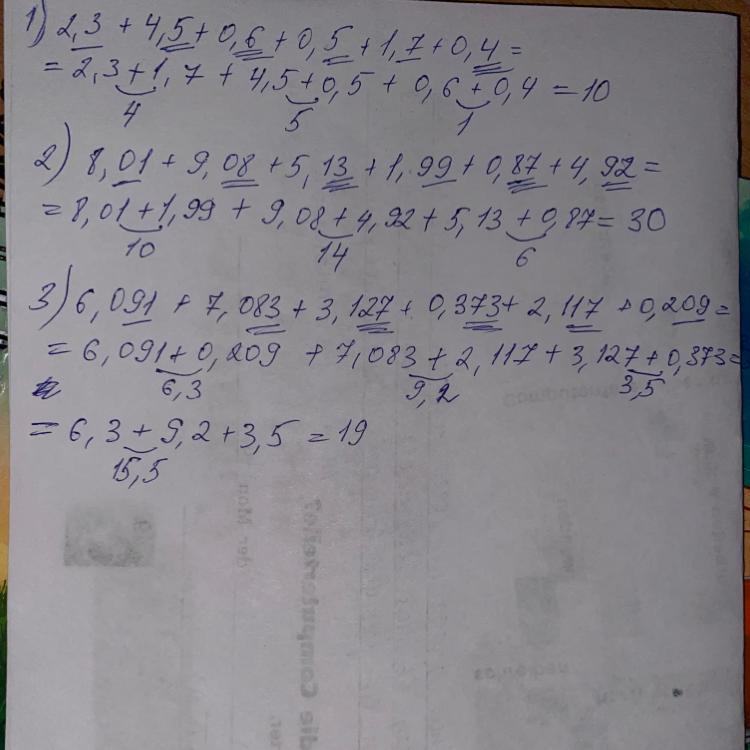 1) 2,3 + 4,5 + 0,6 + 0,5 + 1,7 + 0,4 =
= 2,3 + 1,7 + 4,5 + 0,5 + 0,6 + 0,4 = 10
4 5 1
2) 8,01 + 9,08 + 5,13 + 1,99 + 0,87 + 4,92 =
= 8,01 + 1,99 + 9,08 + 4,92 + 5,13 + 0,87 = 30
10 14 6
3) 6,091 + 7,083 + 3,127 + 0,373 + 2,117 + 0,209 =
= 6,091 + 0,209 + 7,083 + 2,117 + 3,127 + 0,373 =
6,3 9,2 3,5
= 6,3 + 9,2 + 3,5 = 19
15,5
die Computerteile?
der Mon
schreiben